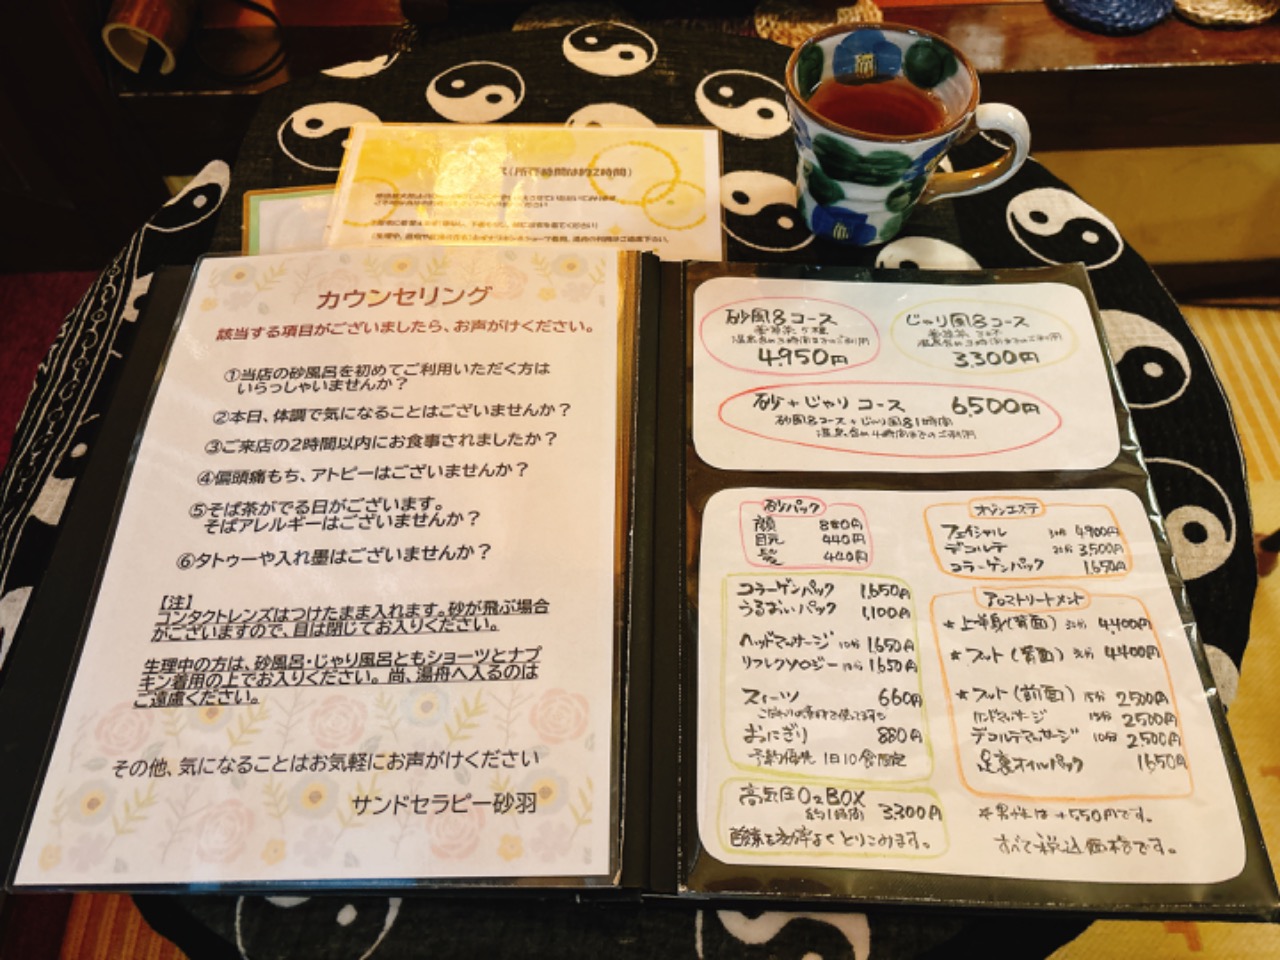 (所要時間は約2時間)
カウンセリング
該当する項目がございましたら、お声がけください。
①当店の砂風呂を初めてご利用いただく方は
いらっしゃいませんか？
②本日、体調で気になることはございませんか？
③ご来店の2時間以内にお食事されましたか？
④偏頭痛もち、アトピーはございませんか？
⑤そば茶がでる日がございます。
そばアレルギーはございませんか？
⑥タトゥーや入れ墨はございませんか？
【注】
コンタクトレンズはつけたまま入れます。砂が飛ぶ場合
がございますので、目は閉じてお入りください。
生理中の方は、砂風呂・じゃり風呂ともショーツとナプ
キン着用の上でお入りください。尚、湯舟へ入るのは
ご遠慮ください。
その他、気になることはお気軽にお声がけください
サンドセラピー砂羽
砂風呂コース
温泉含め3時間までのご利用
4,950円
じゃり風呂コース
温泉含め3時間までのご利用
3,300円
砂+じゃりコース 6,500円
砂風呂コース+じゃり風呂1時間
温泉含め4時間までのご利用
砂パック
顔 880円
目元 440円
髪 440円
コラーゲンパック 1,650円
うるおいパック 1,100円
ヘッドマッサージ 10分 1,650円
リフレクソロジー 10分 1,650円
スイーツ 660円
こだわりの素材で使ってます
おにぎり 880円
予約優先 1日10食限定
高気圧O₂BOX
約1時間 3,300円
酸素を効率よくとりこみます。
オゾンエステ
フェイシャル 30分 4,900円
デコルテ 20分 3,500円
コラーゲンパック 1,650円
アロマトリートメント
*上半身(背面) 30分 4,400円
*フット(背面) 30分 4,400円
*フット(前面) 15分 2,500円
ハンドマッサージ 15分 2,500円
デコルテマッサージ 10分 2,500円
足裏オイルパック 1,650円
※男性は+550円です。
すべて税込価格です。